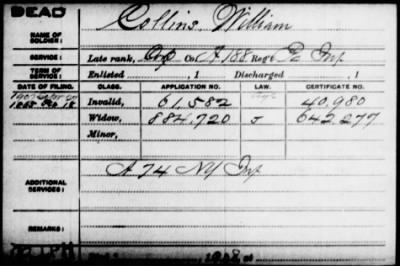 DEAD
NAME OF SOLDIER: Collins, William
SERVICE: Late rank, Corp Co. I, 188 Reg't Pa Inf
TERM OF SERVICE: Enlisted , 1 Discharged , 1
DATE OF FILING. CLASS. APPLICATION NO. LAW. CERTIFICATE NO.
Invalid, 61,582 40,980
Widow, 884,720 642,277
Minor,
ADDITIONAL SERVICES: A 74 NY Inf
REMARKS: